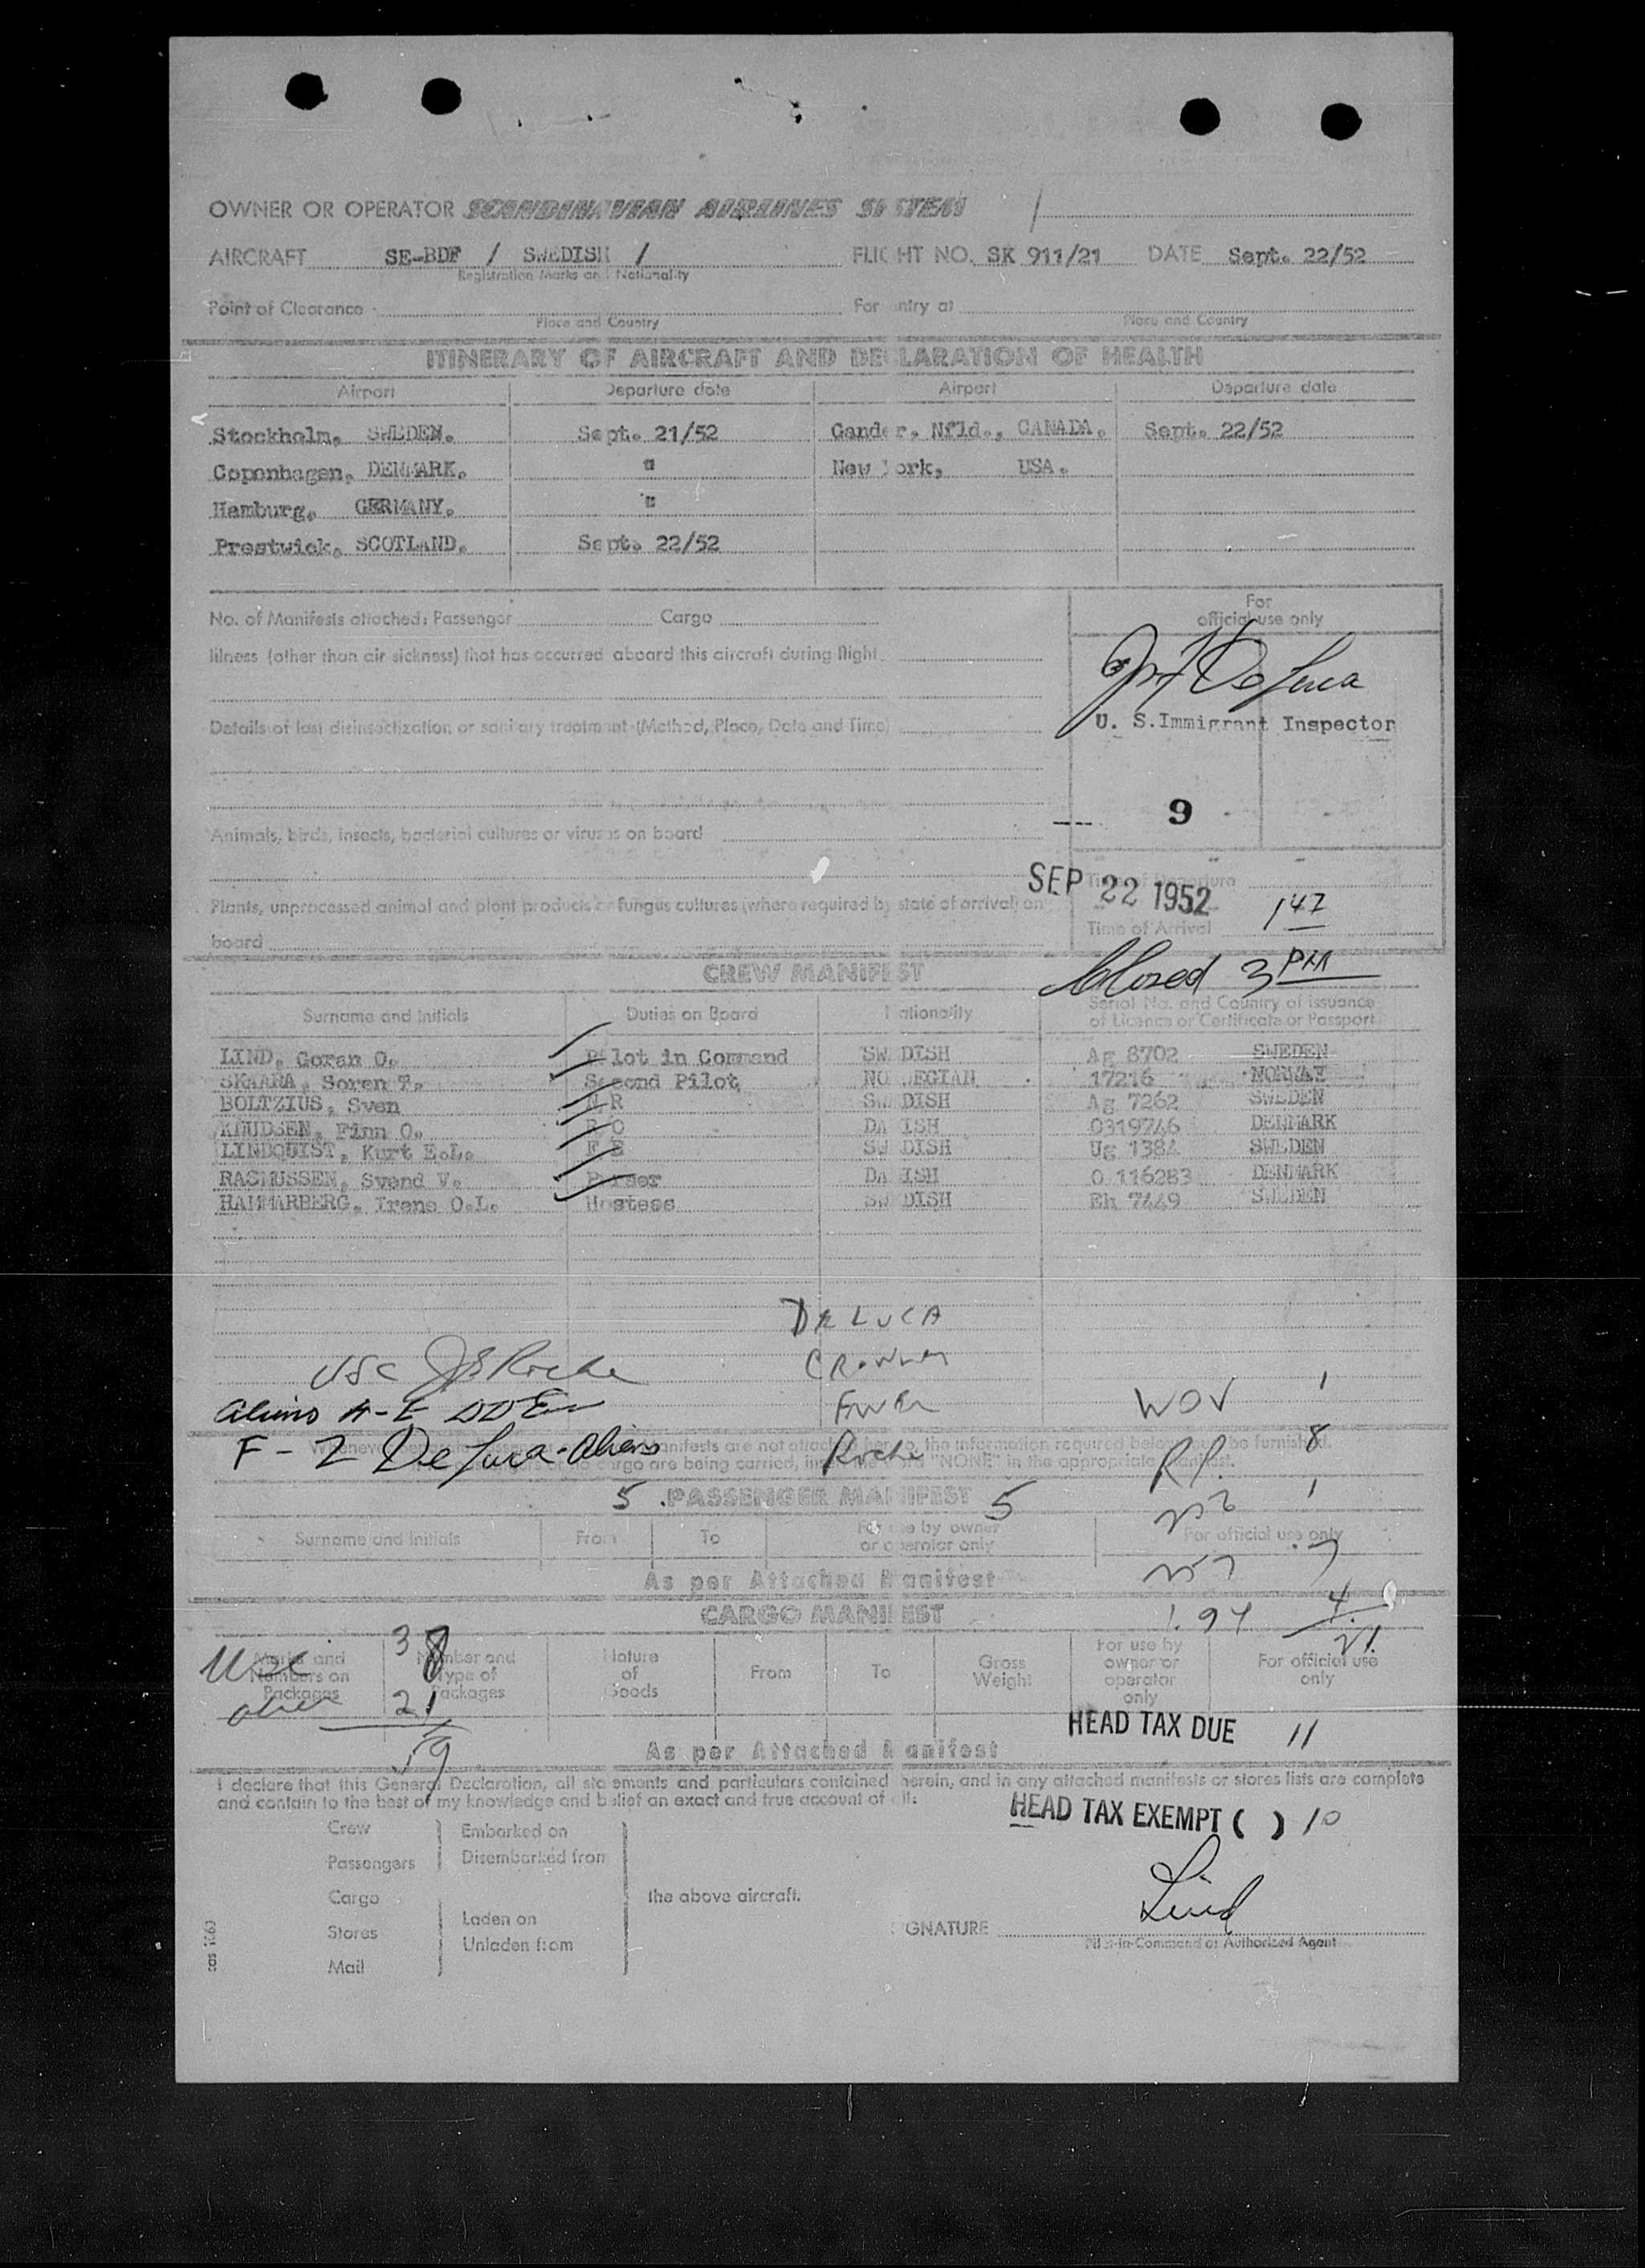 OWNER OR OPERATOR SCANDINAVIAN AIRLINES SYSTEM
AIRCRAFT SE-BDF / SWEDISH / FLIGHT NO. SK 911/21 DATE Sept. 22/52
Registration Marks and Nationality
Point of Clearance For entry at
Place and Country Place and Country
ITINERARY OF AIRCRAFT AND DECLARATION OF HEALTH
Airport Departure date Airport Departure date
Stockholm, SWEDEN. Sept. 21/52 Gander, Nfld., CANADA. Sept. 22/52
Copenhagen, DENMARK. " New York, USA.
Hamburg, GERMANY. "
Prestwick, SCOTLAND. Sept. 22/52
No. of Manifests attached: Passenger Cargo
For
official use only
Illness (other than air sickness) that has occurred aboard this aircraft during flight
De Luca
Details of last disinsectization or sanitary treatment (Method, Place, Date and Time)
U. S. Immigrant Inspector
9
Animals, birds, insects, bacterial cultures or viruses on board
SEP 22 1952
Time of Departure
Plants, unprocessed animal and plant products or fungus cultures (where required by state of arrival) on
board
Time of Arrival 147
CREW MANIFEST
Closed 3 PM
Surname and Initials Duties on Board Nationality Serial No. and Country of issuance
of Licence or Certificate or Passport
LIND, Goran O. Pilot in Command SWEDISH Ag 8702 SWEDEN
SKAARA, Soren T. Second Pilot NORWEGIAN 17216 NORWAY
BOLTZIUS, Sven N R SWEDISH Ag 7262 SWEDEN
KNUDSEN, Finn O. R O DANISH 0319746 DENMARK
LINDQUIST, Kurt E.L. F E SWEDISH Ug 1384 SWEDEN
RASMUSSEN, Svend V. Purser DANISH O 116283 DENMARK
HAMMARBERG, Irene O.L. Hostess SWEDISH Eh 7449 SWEDEN
DELUCA
USC Roche
WOV 1
F-Z De Luca - Aliens Roche R.P. 8
manifests are not attached hereto, the information required below must be furnished.
cargo are being carried, insert the word "NONE" in the appropriate manifest.
5 PASSENGER MANIFEST 5
1
Surname and Initials From To For use by owner
or operator only For official use only
7
As per Attached Manifest
CARGO MANIFEST
4
21
USC 38
Marks and
Numbers on
Packages Number and
Type of
Packages Nature
of
Goods From To Gross
Weight For use by
owner or
operator
only For official use
only
21
59
HEAD TAX DUE 11
As per Attached Manifest
I declare that this General Declaration, all statements and particulars contained herein, and in any attached manifests or stores lists are complete
and contain to the best of my knowledge and belief an exact and true account of all:
HEAD TAX EXEMPT ( ) 10
Crew Embarked on
Passengers Disembarked from
Cargo the above aircraft.
Laden on
Stores Unladen from
Mail
Lind
SIGNATURE
Pilot-in-Command or Authorized Agent